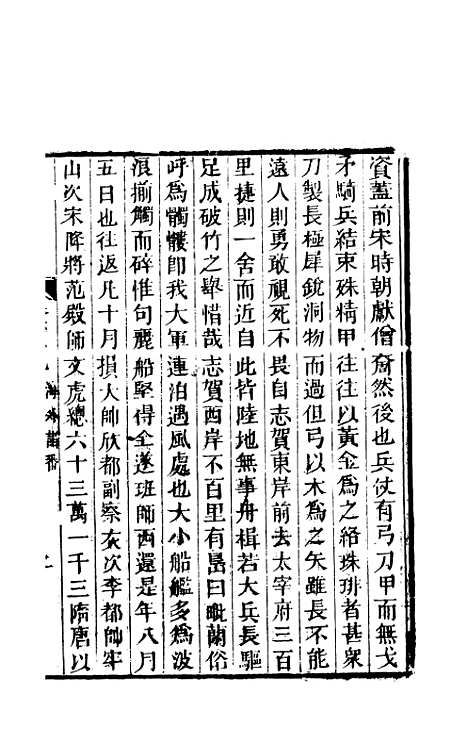 資蓋前宋時朝獻僧奝然後也兵仗有弓刀甲而無戈
矛騎兵結束殊精甲往往以黃金為之絡珠琲者甚衆
刀製長極犀銳洞物而過但弓以木為之矢雖長不能
遠人則勇敢視死不畏自志賀東岸前去太宰府三百
里捷則一舍而近自此皆陸地無事舟楫若大兵長驅
足成破竹之舉惜哉志賀西岸不百里有島曰毗蘭俗
呼為髑髏即我大軍連泊遇風處也大小船艦多為波
浪揃觸而碎惟句麗船堅得全遂班師西還是年八月
五日也往返凡十月損大帥欣都副察灰次李都帥牢
山次宋降將范殿帥文虎總六十三萬一千三隋唐以
海外諸番